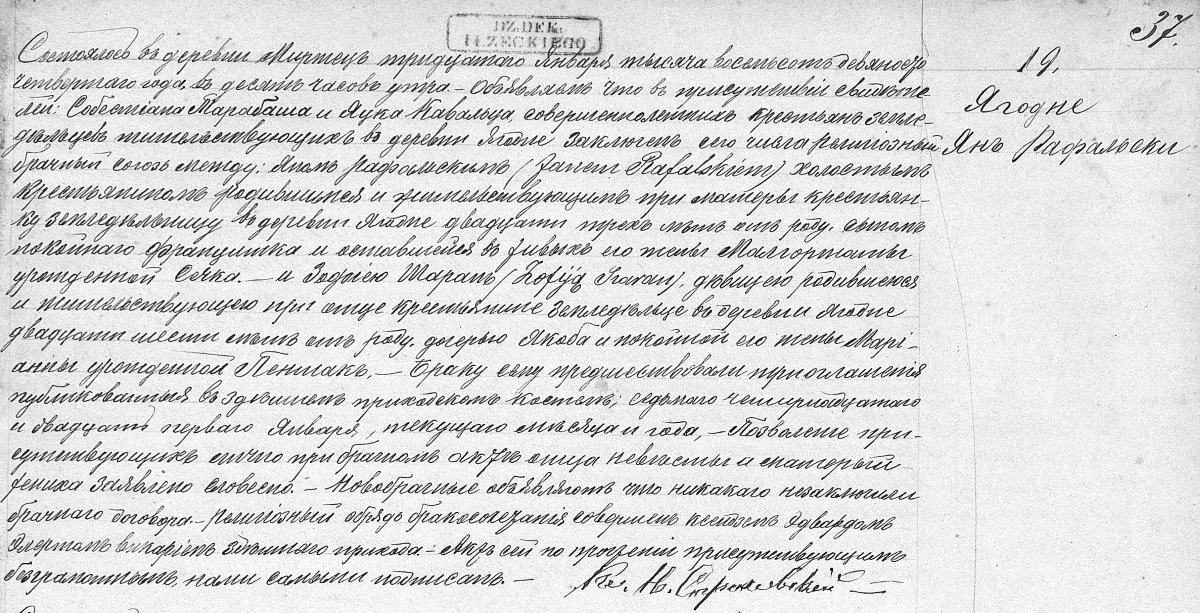 37.
DZ.DEK.
IŁŻECKIEGO
19.
Ягодне
Янъ Рафальски
Состоялось въ деревни Миртецъ тридцатаго Января тысяча восемьсотъ девяносто
четвертаго года, въ десять часовъ утра. — Объявляемъ что въ присутствіи свидѣте-
лей: Собестіана Марабаша и Яцка Кавальца, совершеннолетнихъ крестьянъ земле-
дѣльцевъ жительствующихъ въ деревни Ягодне заключенъ сего числа религіозный
брачный союзъ между: Яномъ Рафальскимъ (Janem Rafalskiem) холостымъ
крестьяниномъ родившимся и жительствующимъ при матеры крестьян-
ку земледѣльницу въ деревни Ягодне двадцати трехъ лѣтъ отъ роду, сыномъ
покойнаго Францишка и оставшейся въ живыхъ его жены Малгоржаты
урожденной Сѣчка. — и Зофіею Шаранъ (Zofiją Szaran), дѣвицею родившеюся
и жительствующею при отце крестьянине земледѣльце въ деревни Ягодне
двадцати шести лѣтъ отъ роду, дочерью Якоба и покойной его жены Марі-
анны урожденной Пентакъ. — Браку сему предшествовали три оглашенія
публикованныя въ здѣшнемъ приходскомъ костелѣ; седьмаго четырнадцатаго
и двадцать перваго Января, текущаго мѣсяца и года, — Позволеніе при-
сутствующихъ лично при брачномъ актѣ отца невѣсты а матерьій
жениха заявлено словесно. — Новобрачные объявляютъ что никакаго незаключили
брачнаго договора. — Религіозный обрядъ бракосочетанія совершенъ ксёнзъ Эдвардомъ
викаріемъ здѣшняго прихода — Актъ сей по прочтеніи присутствующимъ
безграмотнымъ, нами самыми подписанъ. — Кс. Н.